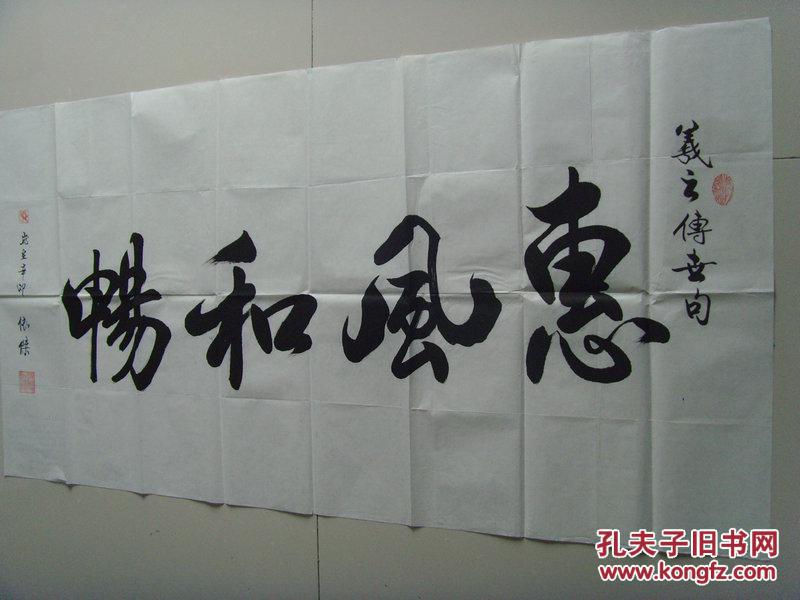 羲之傳世句
惠風和暢
歲在辛卯 依傑
孔夫子旧书网
www.kongfz.com